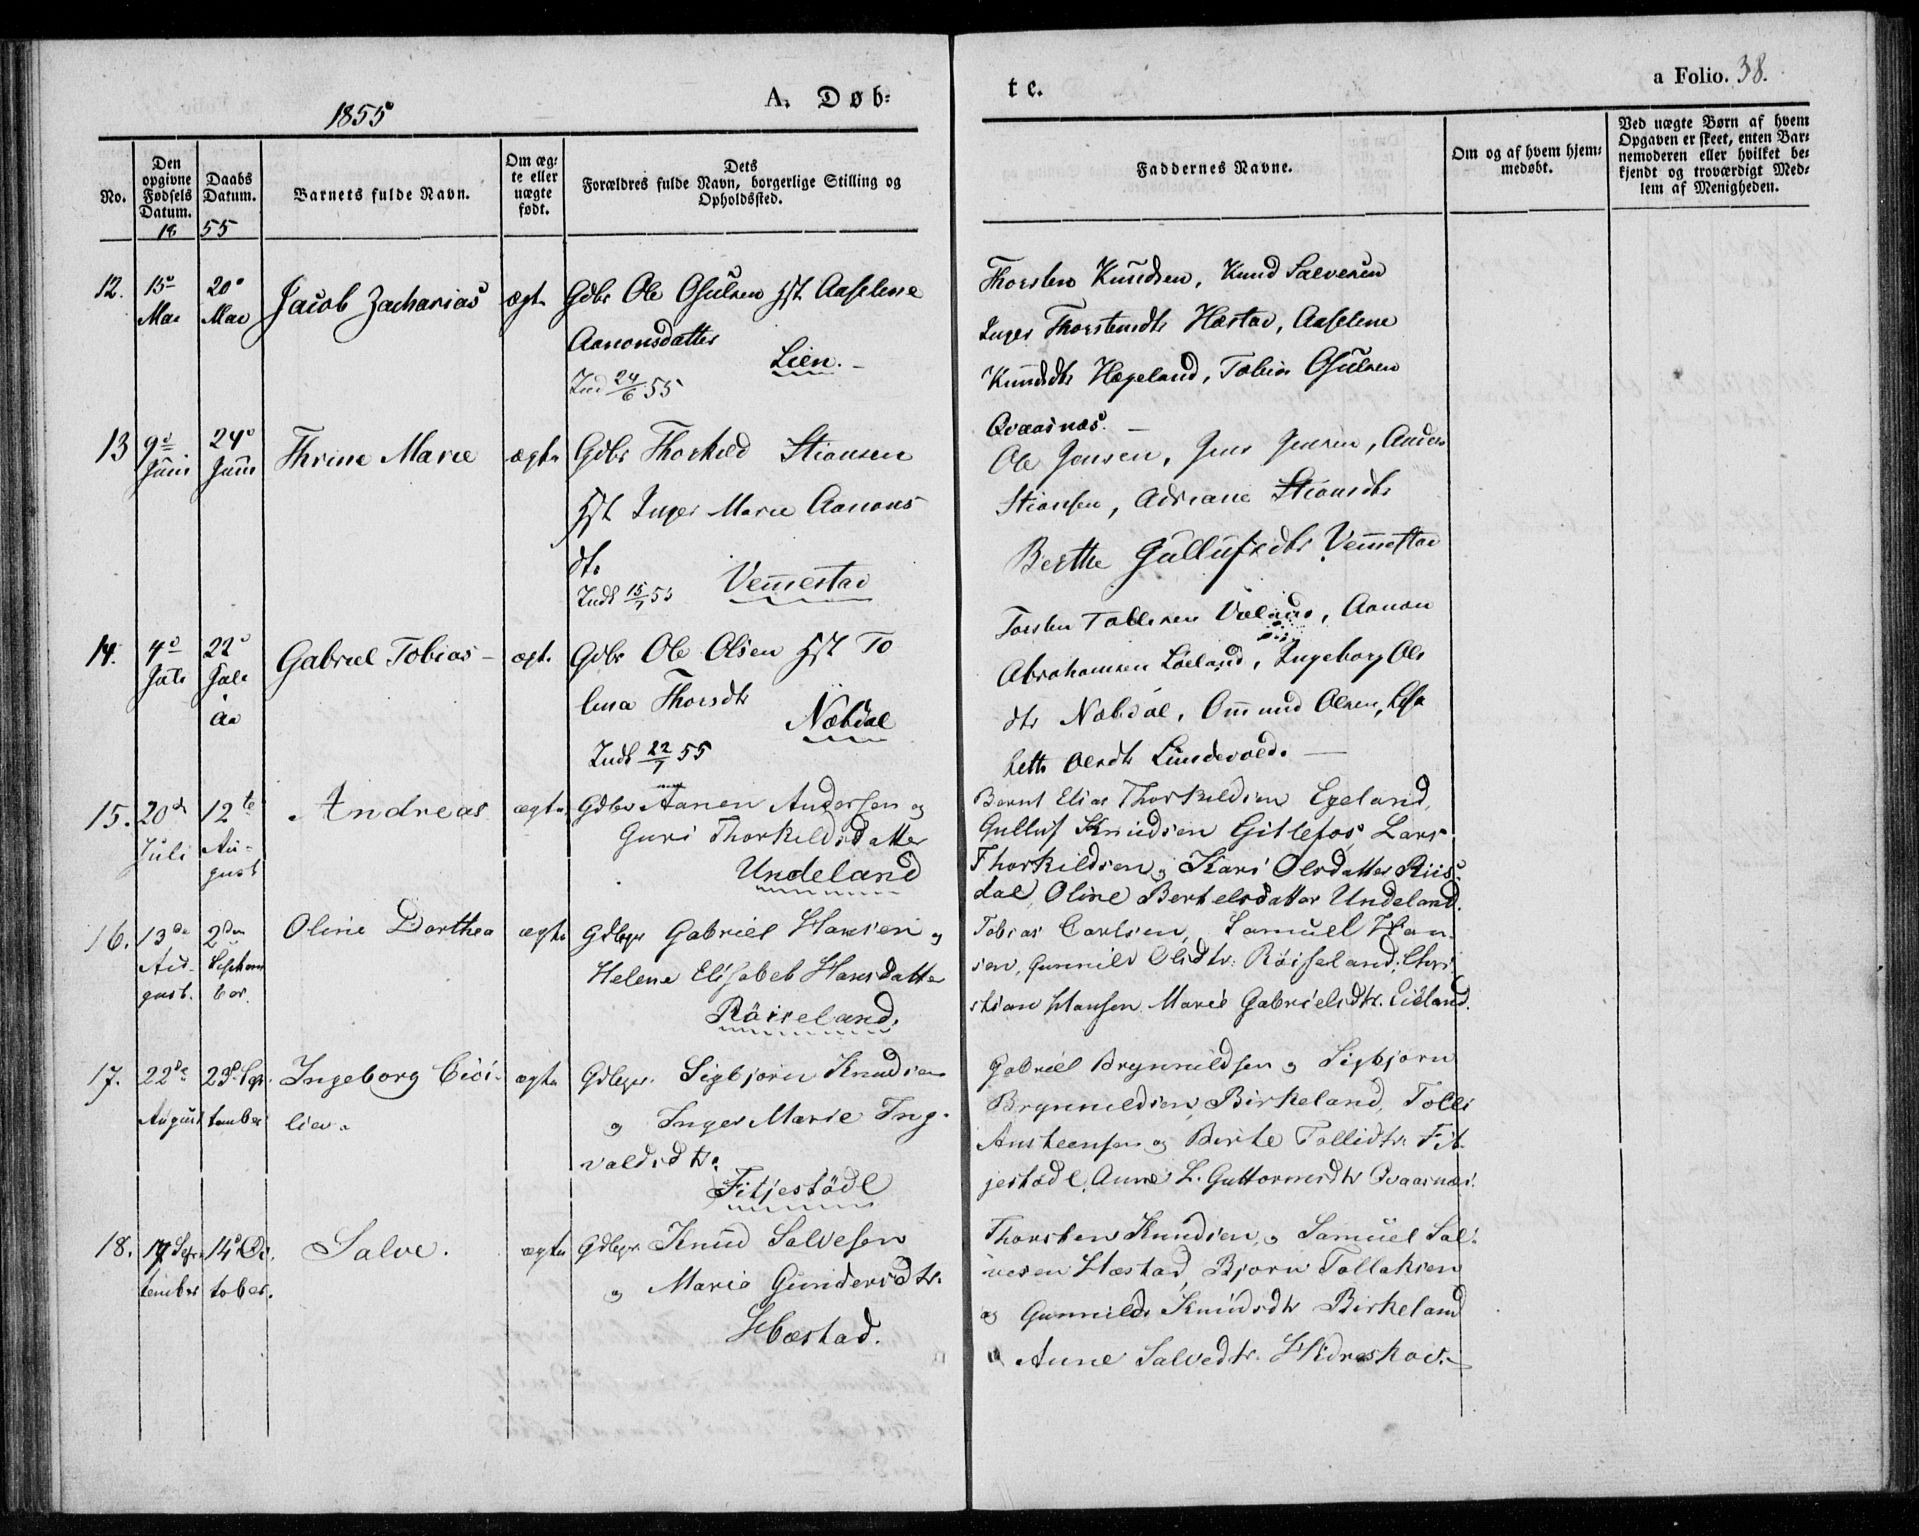 a Folio. 38.
1855
A. Døb-
te.
No.
Den opgivne Fødsels Datum.
Daabs Datum.
Barnets fulde Navn.
Om ægte eller uægte født.
Dets
Forældres fulde Navn, borgerlige Stilling og
Opholdssted.
Faddernes Navne.
Om og af hvem hjem-
medøbt.
Ved uægte Børn af hvem
Opgaven er skeet, enten Bar-
nemoderen eller hvilket be-
kjendt og troværdigt Med-
lem af Menigheden.
18 55
12. 15de Mai 20de Mai Jacob Zacharias ægte Gdbr Ole Osulsen Hst Aaselene
Aanonsdatter
Lien.
Ind 24/6 55
Thorsten Knudsen, Knud Salvesen
Inger Thorstensdtr Hæstad, Aaselene
Knudsdtr Hægeland, Tobias Osulsen
Qvaasnæs. —
13 9de Juni 24de Juni Thrine Marie ægte Gdbr Thorkild Stiansen
Hst Inger Marie Aanons
dtr
Vennestad
Indt 15/7 55
Ole Jensen, Jens Jensen, Anders
Stiansen, Adriane Stiansdtr
Berthe Gullufsdtr Vennestad
14. 4de Juli 22de Juli Gabriel Tobias - ægte Gdbr Ole Olsen Hst To
lena Thorsdtr
Nabdal
Indt 22/7 55
Torsten Tollesen Væland, Aanon
Abrahamsen Løland, Ingeborg Ols
dtr Nabdal, Ommund Olsen, Elisa
beth Olsdtr Lindevold. —
15. 20de Juli 12te August Andreas ægte Gdbr Aanen Andersen og
Guri Thorkildsdatter
Undeland
Bernt Elias Thorkildsen Egeland,
Gulluf Knudsen Gitlefos, Lars
Thorkildsen og Kari Olsdatter Riis-
dal, Oline Bertelsdatter Undeland.
16. 13de August. 2den September. Oline Dorthea ægte Gdbgr Gabriel Hansen og
Helene Elisabet Hansdatter
Røiseland.
Tobias Carlsen, Samuel Han-
sen, Gunnild Olsdtr: Røiseland, Chri
stian Hansen Marie Gabrielsdtr. Eieland.
17. 22de August 23de September Ingeborg Ceci-
lie. ægte Gdbgr. Sigbjørn Knudsen
og Inger Marie Ing-
valdsdtr.
Fitjestødl
Gabriel Brynnildsen og Sigbjørn
Brynnildsen, Birkeland, Tolli
Ansteensen og Birte Tollidtr Fit-
jestødl, Anne L. Guttormsdtr Qvaasnæs.
18. 17 September 14de October. Salve. ægte Gdbgr. Knud Salvesen
og Marie Gundersdtr.
Hæstad.
Thorsten Knudsen, og Samuel Sal-
vesen Hæstad, Bjørn Tollaksen
og Gunnild Knudsdtr Birkeland
Anne Salvedtr.